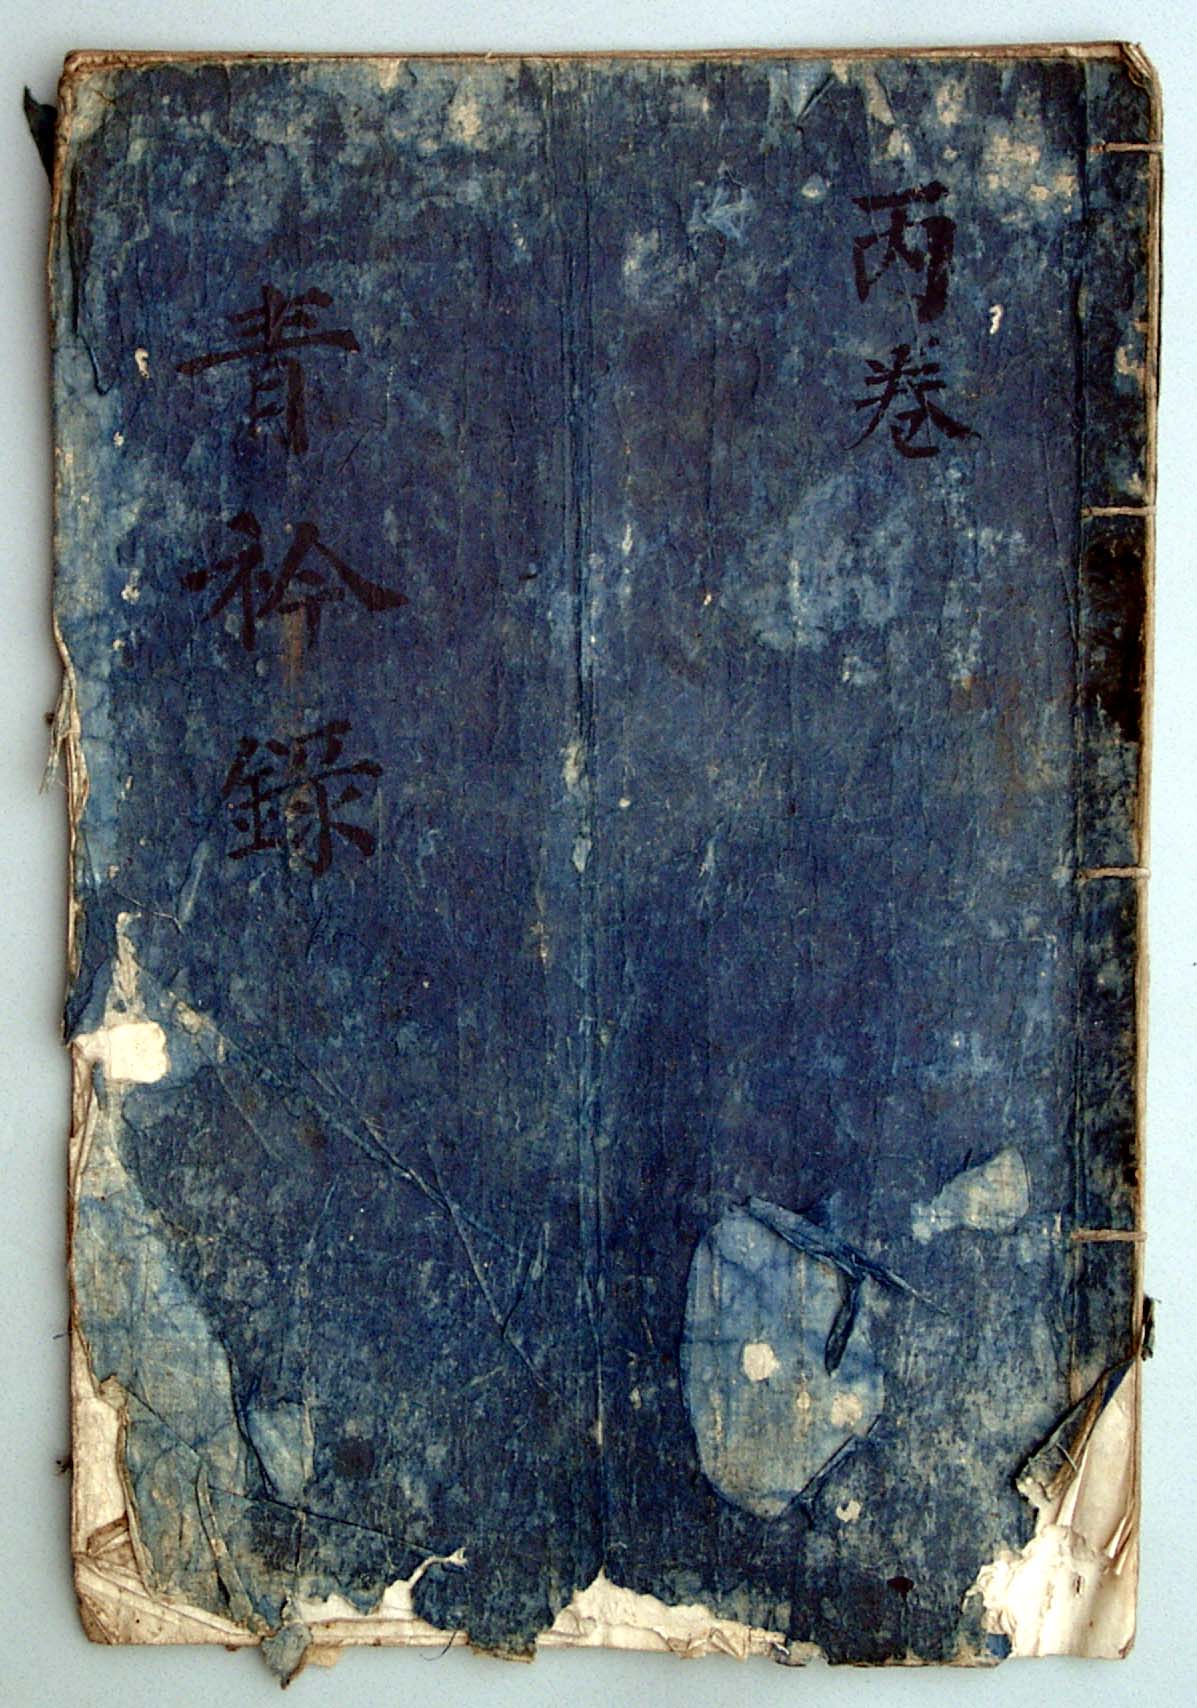 丙卷
青衿錄